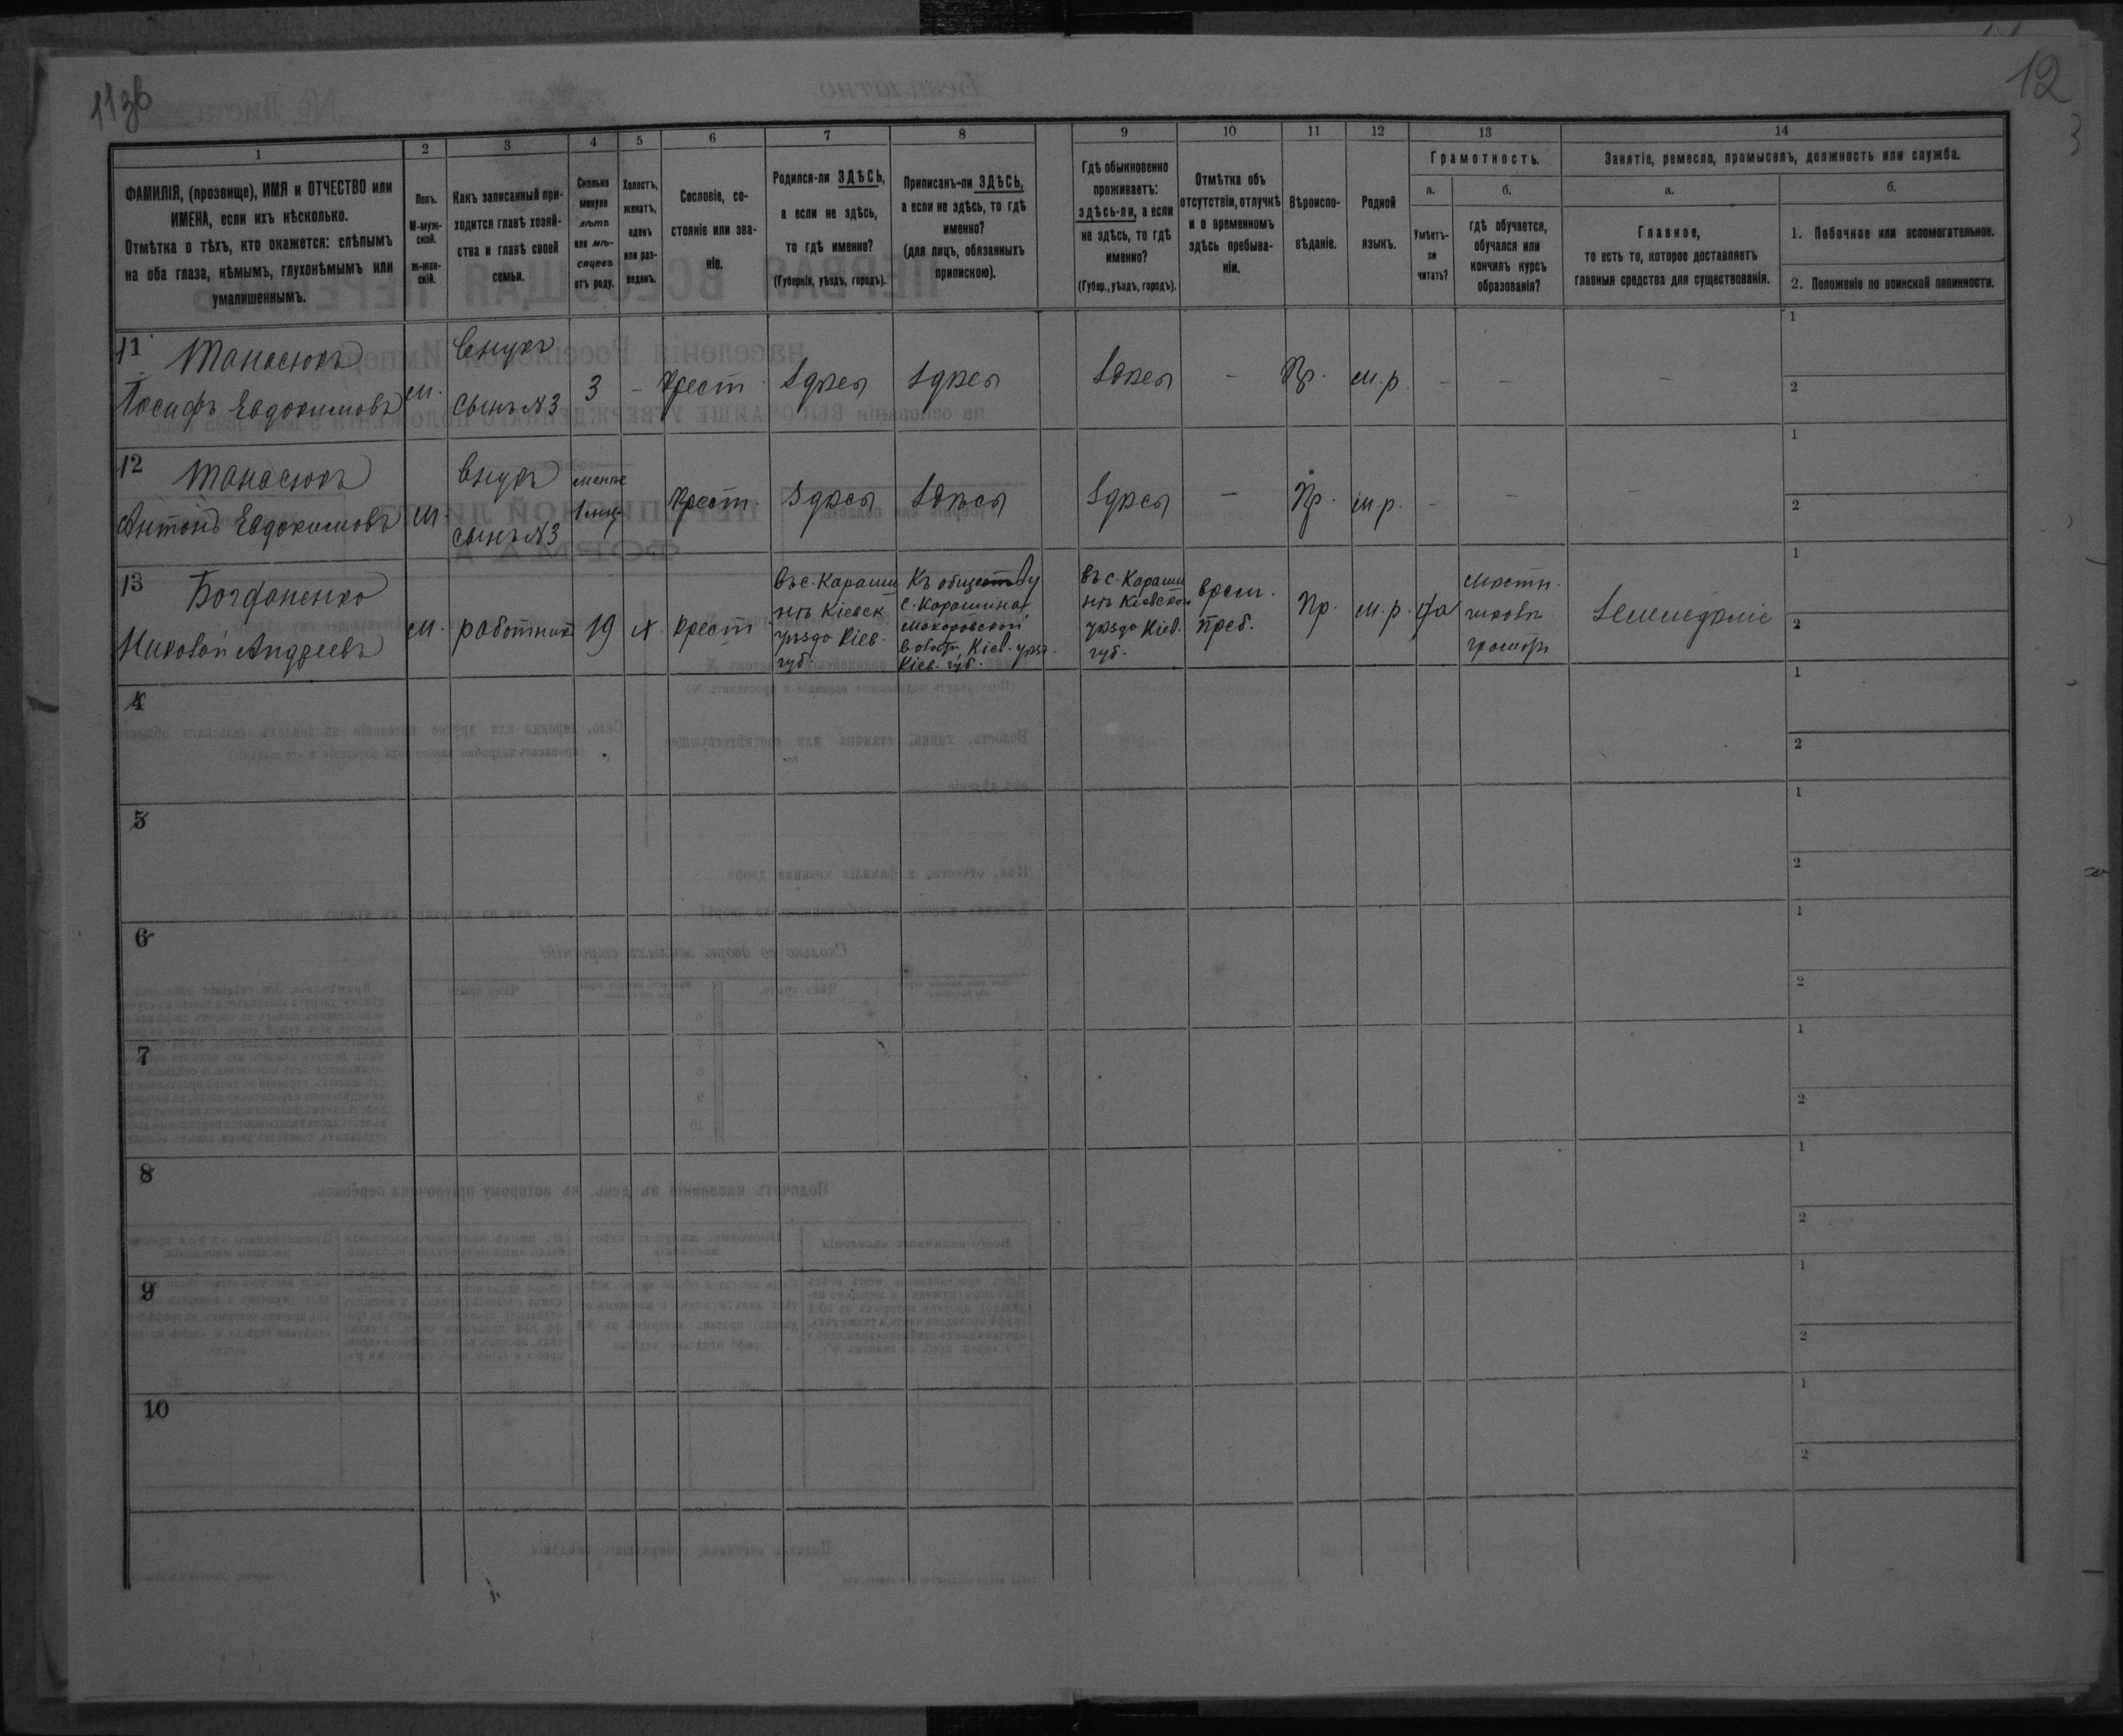 11зв
12
1
2
3
4
5
6
7
8
9
10
11
12
13
14
ФАМИЛІЯ, (прозвище), ИМЯ и ОТЧЕСТВО или
ИМЕНА, если ихъ нѣсколько.
Отмѣтка о тѣхъ, кто окажется: слѣпымъ
на оба глаза, нѣмымъ, глухонѣмымъ или
умалишеннымъ.
Полъ.
М-муж-
ской.
ж-жен-
скій.
Какъ записанный при-
ходится главѣ хозяй-
ства и главѣ своей
семьи.
Сколько
минуло
лѣтъ
или мѣ-
сяцевъ
отъ роду.
Холостъ,
женатъ,
вдовъ
или раз-
веденъ.
Сословіе, со-
стояніе или зва-
ніе.
Родился-ли ЗДѢСЬ,
а если не здѣсь,
то гдѣ именно?
(Губернія, уѣздъ, городъ).
Приписанъ-ли ЗДѢСЬ,
а если не здѣсь, то гдѣ
именно?
(для лицъ, обязанныхъ
припискою).
Гдѣ обыкновенно
проживаетъ:
здѣсь-ли, а если
не здѣсь, то гдѣ
именно?
(Губер., уѣздъ, городъ).
Отмѣтка объ
отсутствіи, отлучкѣ
и о временномъ
здѣсь пребыва-
ніи.
Вѣроиспо-
вѣданіе.
Родной
языкъ.
Грамотность.
а.
Умѣетъ-
ли
читать?
б.
гдѣ обучается,
обучался или
кончилъ курсъ
образованія?
Занятіе, ремесло, промыселъ, должность или служба.
а.
Главное,
то есть то, которое доставляетъ
главныя средства для существованія.
б.
1. Побочное или вспомогательное.
2. Положеніе по воинской повинности.
11 Танасюкъ
Іосифъ Евдокимовъ
м.
внукъ
сынъ №3
3
-
крест.
здѣсь
здѣсь
здѣсь
-
Пр.
м.р.
-
-
-
1
2
12 Танасюкъ
Антонъ Евдокимовъ
м.
внукъ
сынъ №3
менѣе
1 мѣс.
крест.
здѣсь
здѣсь
здѣсь
-
Пр.
м.р.
-
-
-
1
2
13 Богданенко
Николай Андреевъ
м.
работникъ
19
х.
крест
въ с. Караши
нѣ Кіевск.
уѣзда Кіев.
губ.
Къ обществу
с. Карашина
Макаровской
волости Кіев. уѣзд.
Кіев. губ.
въ с. Караши
нѣ Кіевскаго
уѣзда Кіев.
губ.
врем.
преб.
Пр.
м.р.
да
земледѣліе
1
2
4
1
2
5
1
2
6
1
2
7
1
2
8
1
2
9
1
2
10
1
2